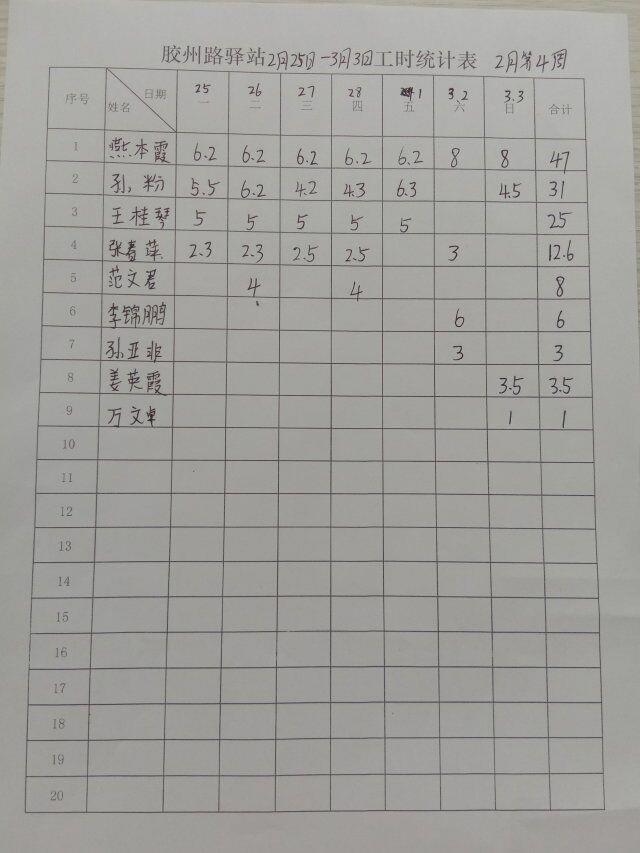 胶州路驿站2月25日-3月3日工时统计表 2月第4周
序号 日期 姓名 25 一 26 二 27 三 28 四 1 五 3.2 六 3.3 日 合计
1 燕本霞 6.2 6.2 6.2 6.2 6.2 8 8 47
2 孙,粉 5.5 6.2 4.2 4.3 6.3 4.5 31
3 王桂琴 5 5 5 5 5 25
4 张春萍 2.3 2.3 2.5 2.5 3 12.6
5 范文君 4 4 8
6 李锦鹏 6 6
7 孙亚非 3 3
8 姜英霞 3.5 3.5
9 万文卓 1 1
10
11
12
13
14
15
16
17
18
19
20